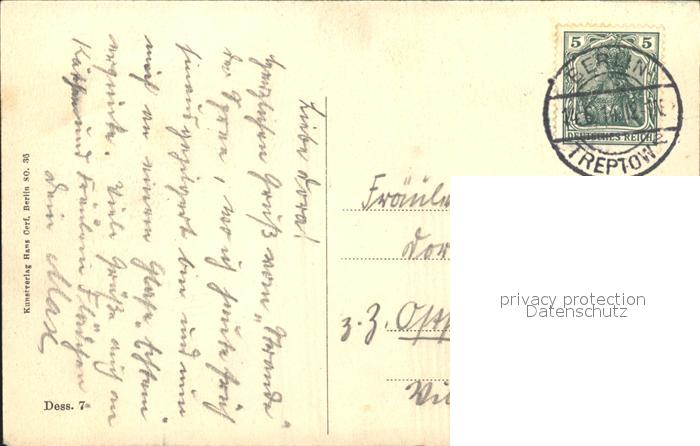 Liebe Dora!
herzlichen Gruß vom „Strande“
der Spree, wo ich heute früh
hinausgepilgert bin und nun
mich an einem Glase
erquicke. Viele Grüße auch an
Käthe und Fräulein
Dein Max
Kunstverlag Hans Gerf, Berlin SO. 36
Dess. 7
5 5
DEUTSCHES REICH
BERLIN
14
TREPTOW
Fräul
Dor
z. Z. Ost
privacy protection
Datenschutz